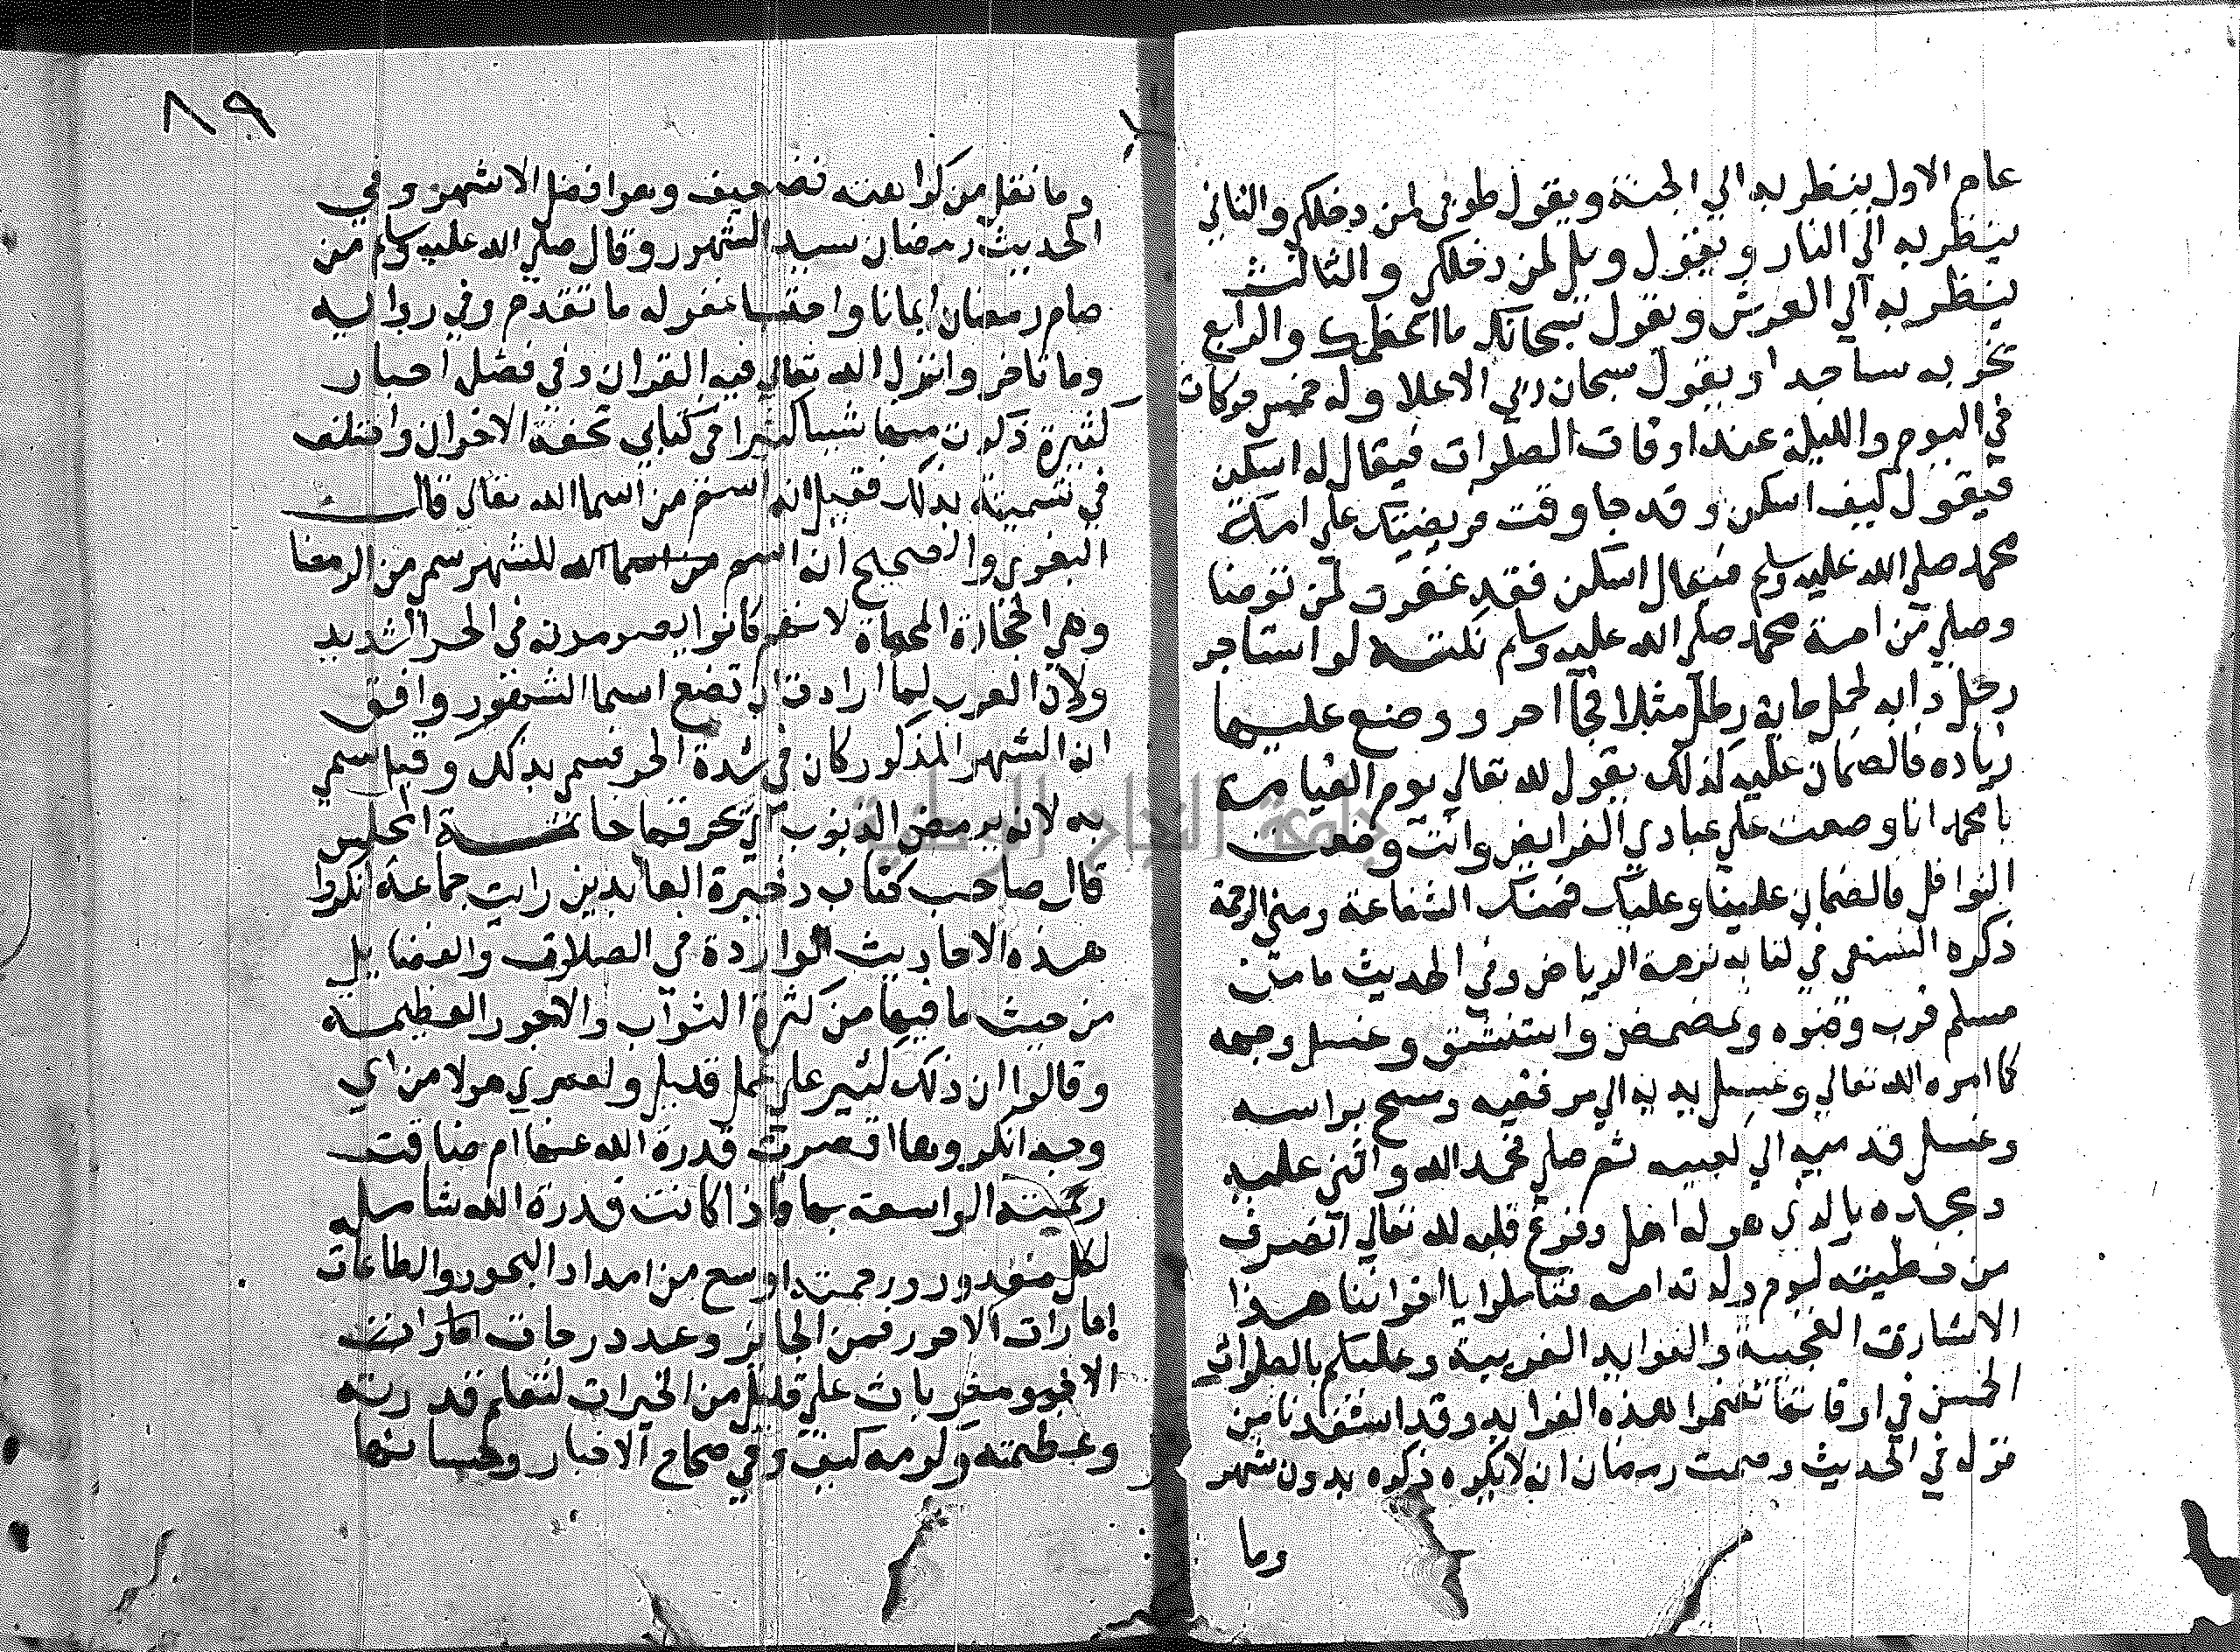 عام الاول ينظر به الي الجنة ويقول طوبي لمن دخلكي والثاني
ينظر به الي النار ويقول ويل لمن دخلكي والثالث
ينظر به الي العرش ويقول سبحانك ما اعظمك والرابع
يخر به ساجدا ويقول سبحان ربي الاعلا وله خمس حركات
في اليوم والليلة عند اوقات الصلوات فيقال له اسكن
فيقول كيف اسكن وقد جا وقت فريضتك علي امة
محمد صلي الله عليه وسلم فيقال اسكن فقد غفرت لمن توضا
وصلي من امة محمد صلي الله عليه وسلم نكتة لو استاجر
رجل دابه لحمل ماية رطل مثلا فجا اخر ووضع عليها
زياده فالضمان عليه كذلك يقول لله تعالي يوم القيامة
يا محمد انا وضعت علي عبادي الفرايض وانت وضعت
النوافل فالضمان علينا وعليك فمنك الشفاعة ومني الرحمة
ذكره النسفي في كتابه نزهة الرياض وفي الحديث ما من
مسلم قرب وضوه وتمضمض واستنشق وغسل وجهه
كما امره الله تعالي وغسل يديه الي مرفقيه ومسح براسه
وغسل قدميه الي كعبيه ثم صلي فحمد الله واثني عليه
ومجده بالذي هو له اهل وفرغ قلبه لله تعالي انصرف
من خطيته ليوم ولدته امه فتاملوا يا اخواننا هذا
الاشارت العجيبة والفوايد الغريبة وعليكم بالصلوات
الخمس في اوقاتها تغنموا هذه الفوايد وقد استفدنا من
قوله في الحديث وصمت رمضان انه لا يكره ذكره بدون شهر
وما
٨٩
وما نقل من كراهته فضعيف وهو افضل الاشهر وفي
الحديث رمضان سيد الشهور وقال صلي الله عليه وسلم من
صام رمضان ايمانا واحتسبا غفر له ما تقدم وفي رواية
وما تاخر وانزل الله تعالي فيه القران وفي فضله اخبار
كثيرة ذكرت منها شيا كثيرا في كتابي تحفة الاخوان واختلف
في تسميته بذلك فقيل انه اسم من اسما الله تعالي قال
البغوي والصحيح انه اسم من اسما الله للشهر سمي من الرمضا
وهي الحجارة المحماة لانهم كانوا يصومونه في الحر الشديد
ولان العرب لما ارادت ان تضع اسما الشهور وافق
ان الشهر المذكور كان في شدة الحر فسمي بذلك وقيل سمي
به لانه يرمض الذنوب اي يحرقها خاتمة المجلس
قال صاحب كتاب ذخيرة العابدين رايت جماعة انكروا
هذه الاحاديث الواردة في الصلاوات والفضايل
من حيث ما فيها من كثرة الثواب والاجور العظيمة
وقالوا ان ذلك كثير علي عمل قليل ولعمري هولا من اي
وجه انكروها اقصرت قدرة الله عنها ام ضاقت
رحمته الواسعة بها فاذا كانت قدرة الله شاملة
لكل مقدور ورحمته اوسع من امداد البحور والطاعات
امارات الاجور فمن الجائز وعد درجات
علي قليل من الخيرات لتعلم قدرته
وعظمته وكرمه كيف وفي صحاح الاخبار وحسانها